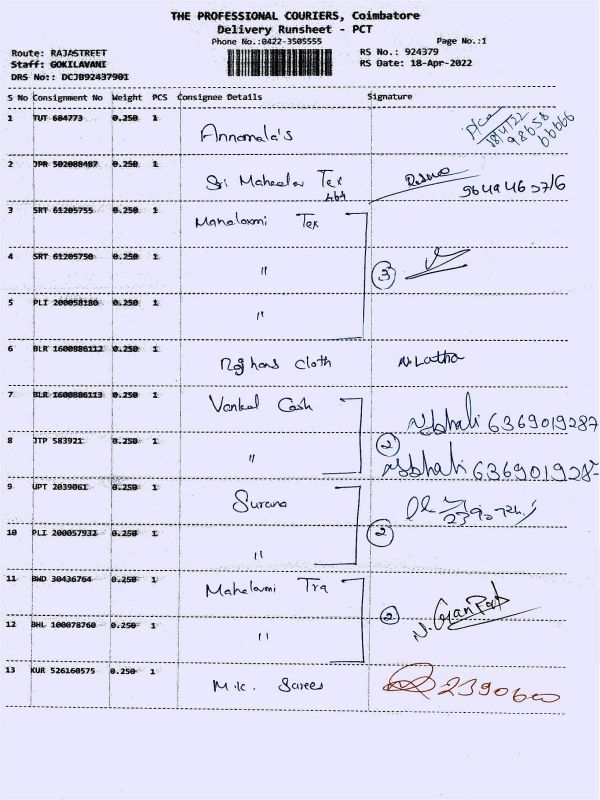 THE PROFESSIONAL COURIERS, Coimbatore
Delivery Runsheet - PCT
Phone No.:0422-3505555 Page No.:1
Route: RAJASTREET RS No.: 924379
Staff: GOKILAVANI RS Date: 18-Apr-2022
DRS No:: DCJB92437901
S No Consignment No Weight PCS Consignee Details Signature
1 TUT 684773 0.250 1 Annamala's
18/4/22
98658
66666
2 JPR 502088487 0.250 1 Sri Mahadev Tex
3 SRT 61205755 0.250 1 Mahalaxmi Tex
4 SRT 61205750 0.250 1 " 3
5 PLI 200058180 0.250 1 "
6 BLR 1600886112 0.250 1 Cloth N. Latha
7 BLR 1600886113 0.250 1 Vankal Cash 6369019287
8 JTP 583921 0.250 1 " 2 636901928
9 UPT 2039061 0.250 1 Surana
10 PLI 200057932 0.250 1 " 2
11 BWD 30436764 0.250 1 Mahalaxmi Tra
12 BHL 100078760 0.250 1 " 2
13 KUR 526160575 0.250 1 M.K. Sarees 2390600